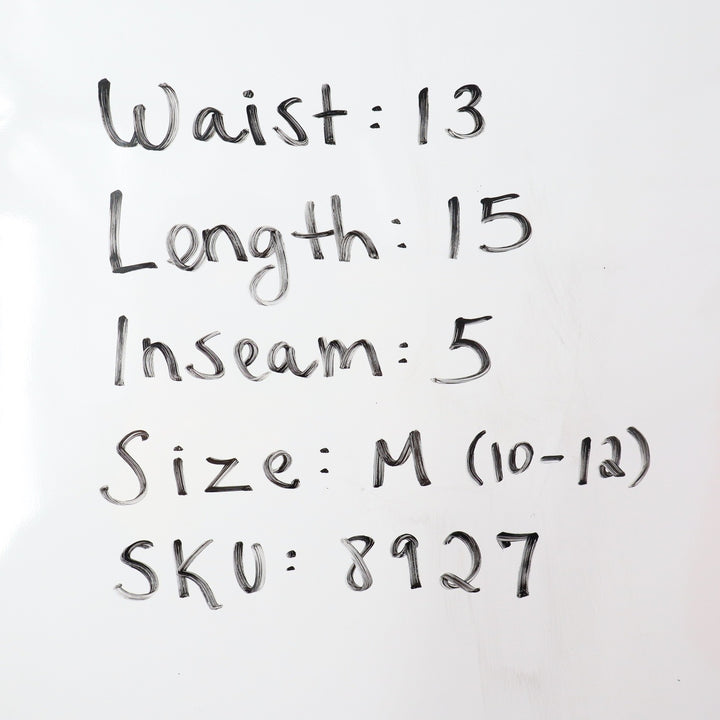 Waist: 13
Length: 15
Inseam: 5
Size: M (10-12)
SKU: 8927